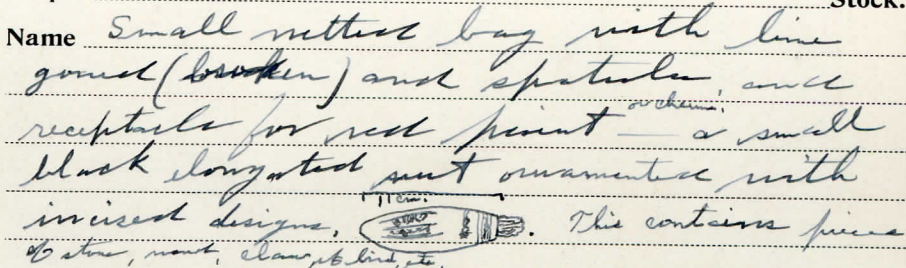 Stock.
Name Small netted bag with lime
gourd (broken) and spatula, and
receptacle for red paint — or charm. a small
black elongated nut ornamented with
11 cm.
incised designs. . This contains pieces
of stone, claw, of bird, etc.